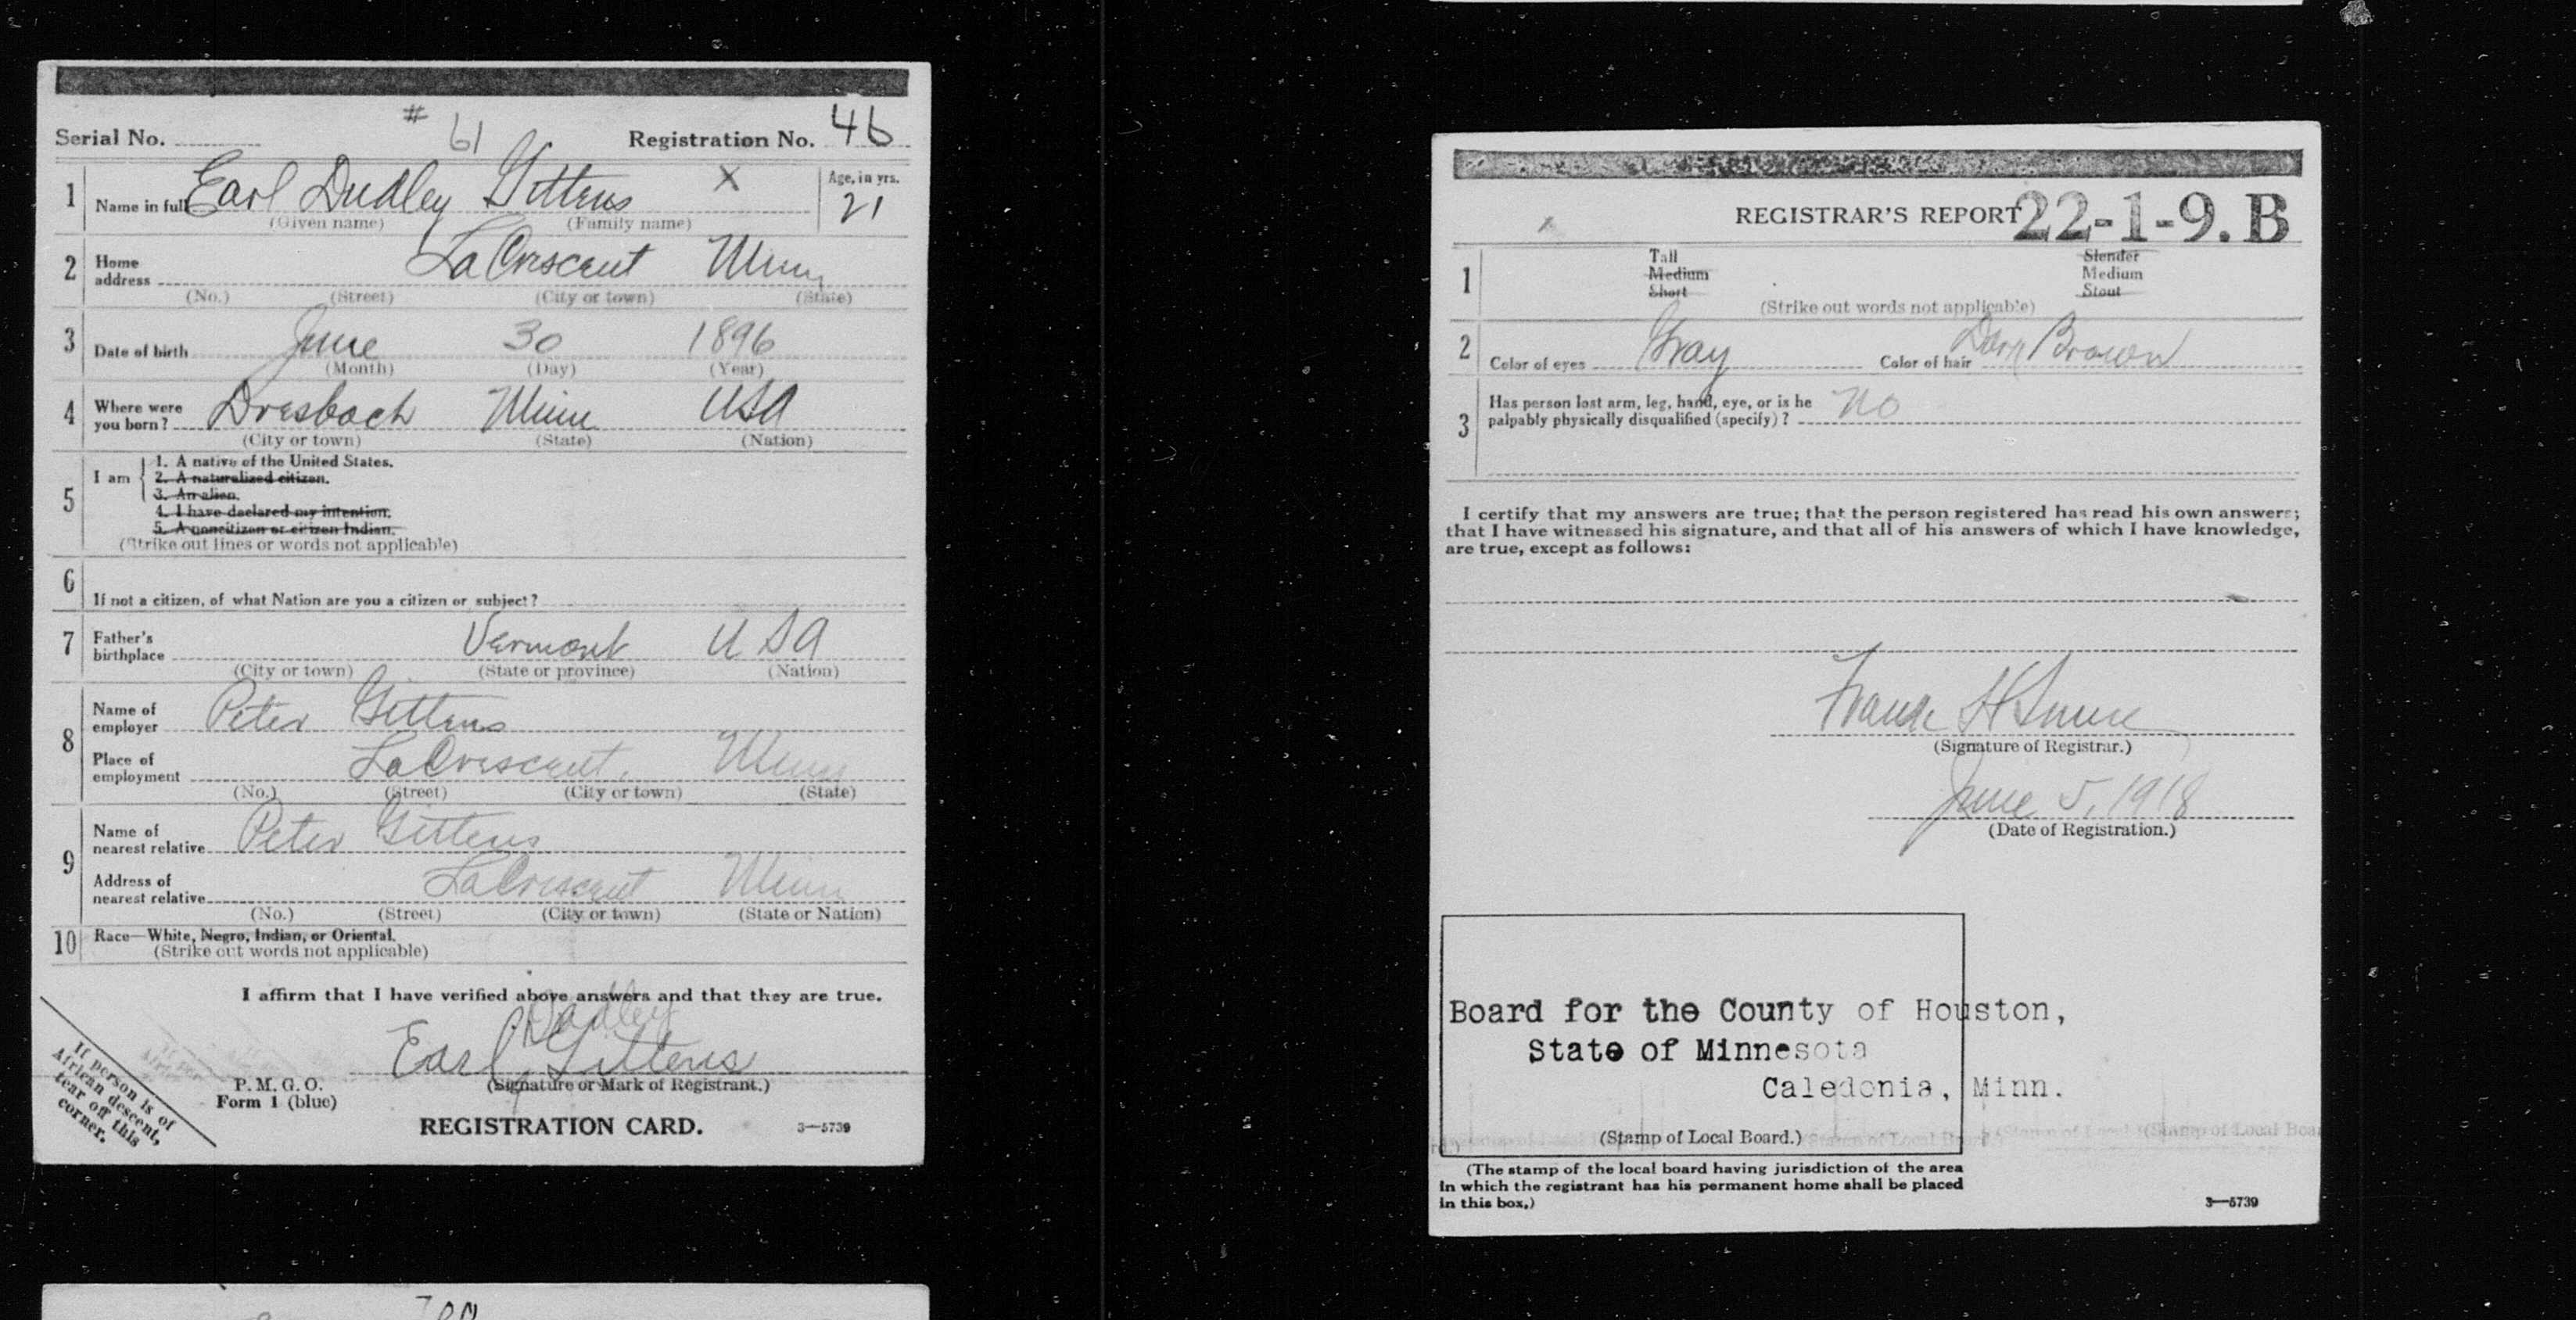 # 61
Serial No. Registration No. 46
1 Name in full Earl Dudley Gittens X Age, in yrs. 21
(Given name) (Family name)
2 Home address LaCrescent Minn
(No.) (Street) (City or town) (State)
3 Date of birth June 30 1896
(Month) (Day) (Year)
4 Where were you born? Dresbach Minn USA
(City or town) (State) (Nation)
5 I am
1. A native of the United States.
2. A naturalized citizen.
3. An alien.
4. I have declared my intention.
5. A noncitizen or citizen Indian.
(Strike out lines or words not applicable)
6 If not a citizen, of what Nation are you a citizen or subject?
7 Father's birthplace Vermont USA
(City or town) (State or province) (Nation)
8 Name of employer Peter Gittens
Place of employment LaCrescent, Minn
(No.) (Street) (City or town) (State)
9 Name of nearest relative Peter Gittens
Address of nearest relative LaCrescent Minn
(No.) (Street) (City or town) (State or Nation)
10 Race—White, Negro, Indian, or Oriental.
(Strike out words not applicable)
I affirm that I have verified above answers and that they are true.
Dudley
Earl Gittens
(Signature or Mark of Registrant.)
P. M. G. O.
Form 1 (blue)
REGISTRATION CARD. 3—5739
If person is of
African descent,
tear off this
corner.
REGISTRAR'S REPORT 22-1-9. B
x
1 Tall Slender
Medium Medium
Short Stout
(Strike out words not applicable)
2 Color of eyes Gray Color of hair Dark Brown
3 Has person lost arm, leg, hand, eye, or is he
palpably physically disqualified (specify)? No
I certify that my answers are true; that the person registered has read his own answers;
that I have witnessed his signature, and that all of his answers of which I have knowledge,
are true, except as follows:
Frank H
(Signature of Registrar.)
June 5, 1918
(Date of Registration.)
Board for the County of Houston,
State of Minnesota
Caledonia, Minn.
(Stamp of Local Board.)
(The stamp of the local board having jurisdiction of the area
in which the registrant has his permanent home shall be placed
in this box.)
3—5739